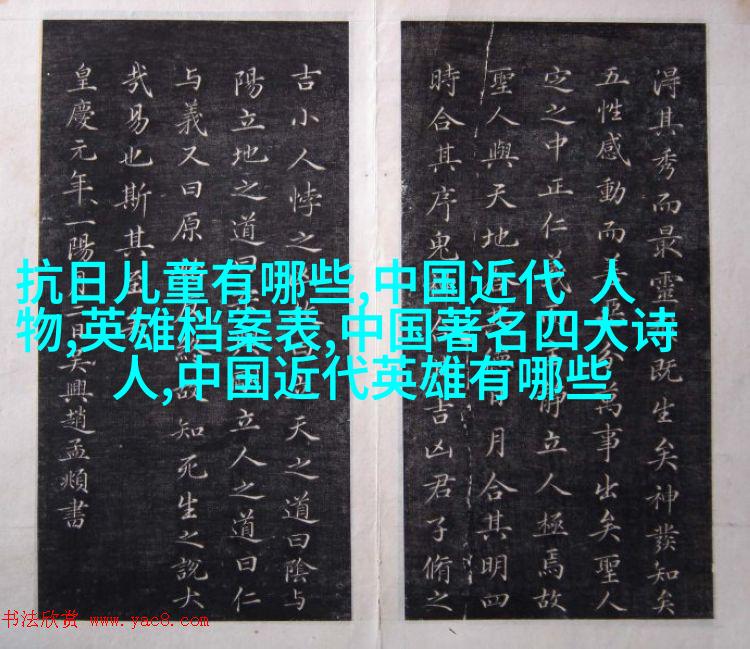 得其秀而最靈既生矣神發知矣
五性感動而善分萬事出矣聖人
定之中正仁静立人極焉故
聖人與天地合日月合其明四
時合其序鬼合吉凶君子脩之
吉小人悖之曰立天之道曰陰与
陽立地之道曰立人之道曰仁
与義又曰原終故知死生之說大
哉易也斯其至
皇慶元年一陽月二日吳興趙孟頫書
抗日儿童有哪些,中国近代 人
物,英雄档案表,中国著名四大诗
人,中国近代英雄有哪些
书法欣赏 www.yac8.com